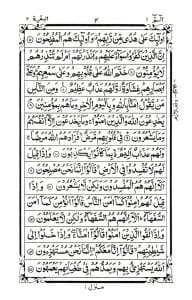 البقرة ٢
٢
الٓمّٓ ١
اُولٰٓئِكَ عَلٰى هُدًى مِّنْ رَّبِّهِمْ وَاُولٰٓئِكَ هُمُ الْمُفْلِحُوْنَ
اِنَّ الَّذِيْنَ كَفَرُوْا سَوَآءٌ عَلَيْهِمْ ءَاَنْذَرْتَهُمْ اَمْ لَمْ تُنْذِرْهُمْ
لَا يُؤْمِنُوْنَ خَتَمَ اللّٰهُ عَلٰى قُلُوْبِهِمْ وَعَلٰى سَمْعِهِمْ وَعَلٰٓى
اَبْصَارِهِمْ غِشَاوَةٌ وَّلَهُمْ عَذَابٌ عَظِيْمٌ وَمِنَ النَّاسِ
مَنْ يَّقُوْلُ اٰمَنَّا بِاللّٰهِ وَبِالْيَوْمِ الْاٰخِرِ وَمَا هُمْ بِمُؤْمِنِيْنَ
يُخٰدِعُوْنَ اللّٰهَ وَالَّذِيْنَ اٰمَنُوْا وَمَا يَخْدَعُوْنَ اِلَّآ اَنْفُسَهُمْ
وَمَا يَشْعُرُوْنَ فِيْ قُلُوْبِهِمْ مَّرَضٌ فَزَادَهُمُ اللّٰهُ مَرَضًا
وَلَهُمْ عَذَابٌ اَلِيْمٌ بِمَا كَانُوْا يَكْذِبُوْنَ وَاِذَا قِيْلَ
لَهُمْ لَا تُفْسِدُوْا فِى الْاَرْضِ قَالُوْٓا اِنَّمَا نَحْنُ مُصْلِحُوْنَ
اَلَآ اِنَّهُمْ هُمُ الْمُفْسِدُوْنَ وَلٰكِنْ لَّا يَشْعُرُوْنَ وَاِذَا
قِيْلَ لَهُمْ اٰمِنُوْا كَمَآ اٰمَنَ النَّاسُ قَالُوْٓا اَنُؤْمِنُ كَمَآ اٰمَنَ
السُّفَهَآءُ اَلَآ اِنَّهُمْ هُمُ السُّفَهَآءُ وَلٰكِنْ لَّا يَعْلَمُوْنَ
وَاِذَا لَقُوا الَّذِيْنَ اٰمَنُوْا قَالُوْٓا اٰمَنَّا وَاِذَا خَلَوْا اِلٰى
شَيٰطِيْنِهِمْ قَالُوْٓا اِنَّا مَعَكُمْ اِنَّمَا نَحْنُ مُسْتَهْزِءُوْنَ
اَللّٰهُ يَسْتَهْزِئُ بِهِمْ وَيَمُدُّهُمْ فِيْ طُغْيَانِهِمْ يَعْمَهُوْنَ
منزل ١